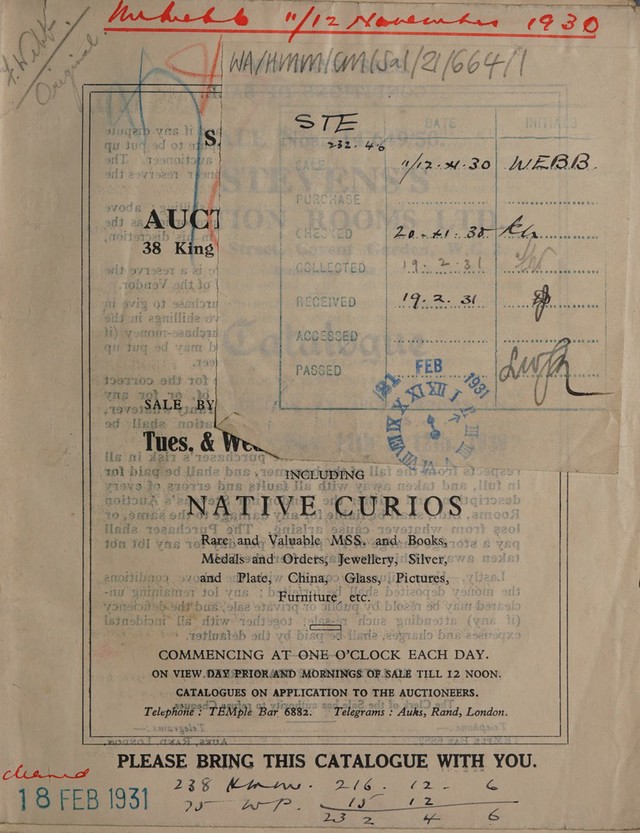 11/12 November 1930
F. Webb
Original
WA/HMM/CM/Sal/21/664/1
STE
232.4.6
DATE
INITIALS
SALE 11/12.XI.30 WEBB.
PURCHASE
CHECKED 20.XI.30
COLLECTED 19.2.31
RECEIVED 19.2.31
ACCESSED
PASSED
21 FEB 1931
S
STEVENS'S
AUCTION ROOMS LTD
38 King Street, Covent Garden,
Catalogue
SALE BY
Tues. & Wed
INCLUDING
NATIVE CURIOS
Rare and Valuable MSS. and Books,
Medals and Orders, Jewellery, Silver,
and Plate, China, Glass, Pictures,
Furniture, etc.
COMMENCING AT ONE O'CLOCK EACH DAY.
ON VIEW DAY PRIOR AND MORNINGS OF SALE TILL 12 NOON.
CATALOGUES ON APPLICATION TO THE AUCTIONEERS.
Telephone : TEMple Bar 6882. Telegrams : Auks, Rand, London.
PLEASE BRING THIS CATALOGUE WITH YOU.
cleared
18 FEB 1931
238 216. 12. 6
75 W.P. 15 12
232 4 6